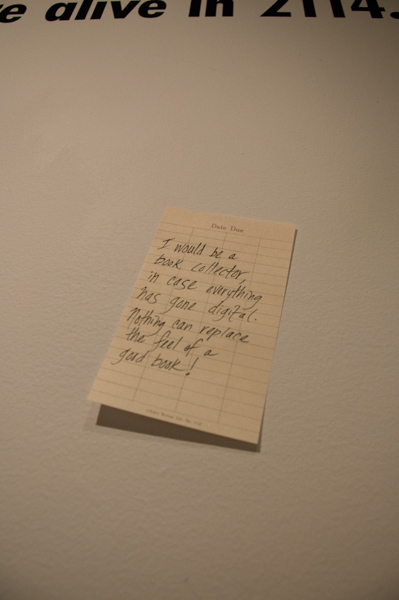 e alive in 2114.
Date Due
I would be a
book collector,
in case everything
has gone digital.
Nothing can replace
the feel of a
good book!